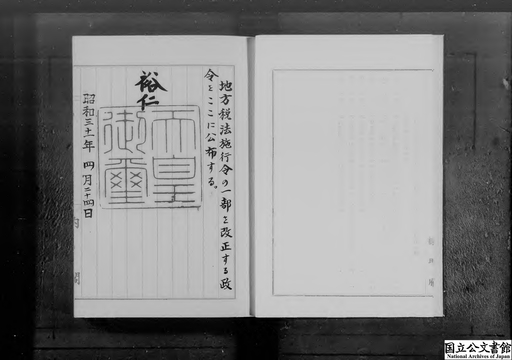 地方税法施行令の一部を改正する政
令をここに公布する。
裕仁
天皇
御璽
昭和三十一年 四月二十四日
内閣
国立公文書館
National Archives of Japan